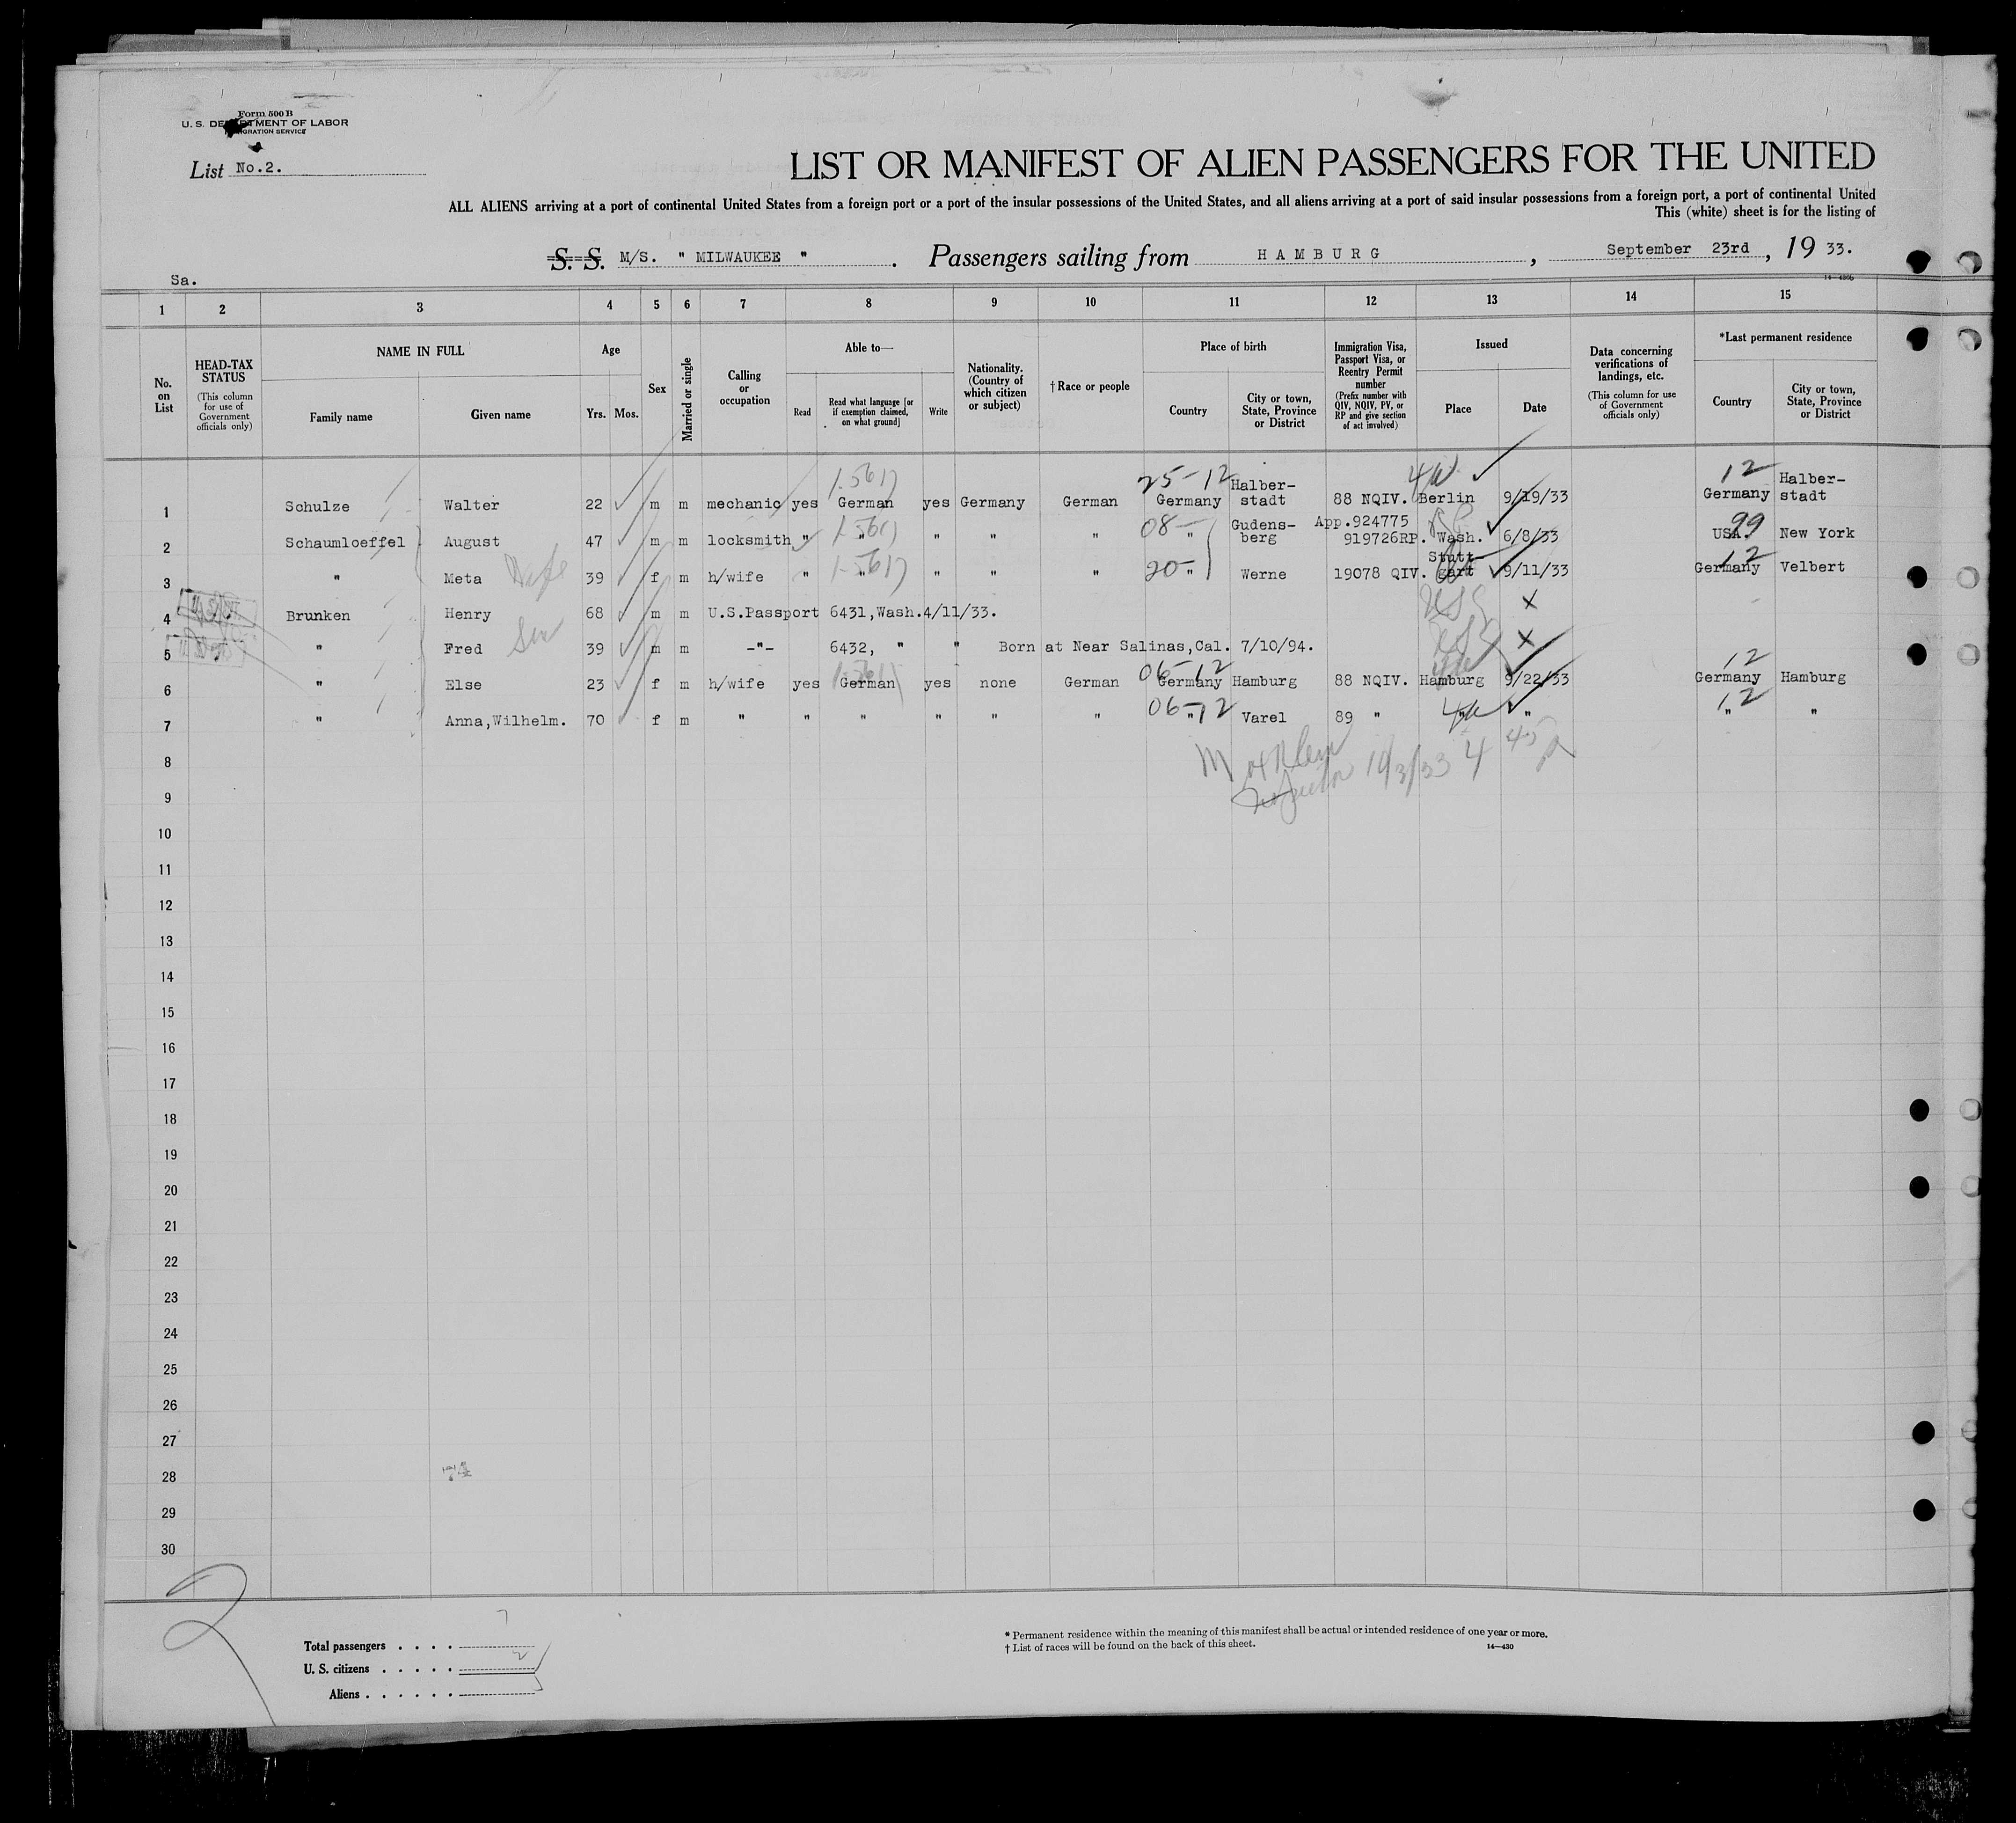 Form 500 B
U. S. DEPARTMENT OF LABOR
IMMIGRATION SERVICE
List No.2.
LIST OR MANIFEST OF ALIEN PASSENGERS FOR THE UNITED
ALL ALIENS arriving at a port of continental United States from a foreign port or a port of the insular possessions of the United States, and all aliens arriving at a port of said insular possessions from a foreign port, a port of continental United
This (white) sheet is for the listing of
S. S. M/S. " MILWAUKEE " . Passengers sailing from HAMBURG , September 23rd , 19 33.
Sa.
14—430b
1 2 3 4 5 6 7 8 9 10 11 12 13 14 15
No. on List
HEAD-TAX STATUS (This column for use of Government officials only)
NAME IN FULL
Family name Given name
Age
Yrs. Mos.
Sex
Married or single
Calling or occupation
Able to—
Read
Read what language [or if exemption claimed, on what ground]
Write
Nationality. (Country of which citizen or subject)
†Race or people
Place of birth
Country
City or town, State, Province or District
Immigration Visa, Passport Visa, or Reentry Permit number (Prefix number with QIV, NQIV, PV, or RP and give section of act involved)
Issued
Place Date
Data concerning verifications of landings, etc. (This column for use of Government officials only)
*Last permanent residence
Country
City or town, State, Province or District
1 Schulze Walter 22 m m mechanic yes German yes Germany German 25-12 Germany Halber-stadt 88 NQIV. Berlin 9/19/33 12 Germany Halber-stadt
2 Schaumloeffel August 47 m m locksmith " " " " " 08- " Gudens-berg App.924775 919726RP. Wash. 6/8/33 99 USA. New York
3 " Meta Wife 39 f m h/wife " " " " " 20- " Werne 19078 QIV. Stutt-gart 9/11/33 12 Germany Velbert
4 Brunken Henry 68 m m U.S.Passport 6431,Wash.4/11/33. USC X
5 " Fred Son 39 m m -"- 6432, " " Born at Near Salinas,Cal. 7/10/94. USC X
6 " Else 23 f m h/wife yes German yes none German 06-12 Germany Hamburg 88 NQIV. Hamburg 9/22/33 12 Germany Hamburg
7 " Anna,Wilhelm. 70 f m " " " " " " 06-12 " Varel 89 " " " 12 " "
8
Inspector 10/3/33 4 45 P
9
10
11
12
13
14
15
16
17
18
19
20
21
22
23
24
25
26
27
28
29
30
2
Total passengers . . . . 7
U. S. citizens . . . . . 2
Aliens . . . . . . 5
* Permanent residence within the meaning of this manifest shall be actual or intended residence of one year or more.
† List of races will be found on the back of this sheet.
14—430